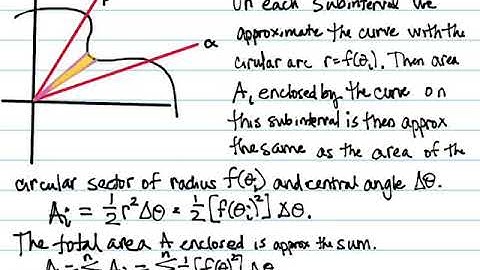 On each subinterval we
approximate the curve with the
α
cirular arc r=f(θᵢ). Then area
Aᵢ enclosed by the curve on
this subinterval is then approx
the same as the area of the
circular sector of radius f(θᵢ) and central angle Δθ.
Aᵢ = 1/2 r²Δθ = 1/2 [f(θᵢ)²] Δθ.
The total area A enclosed is approx the sum.